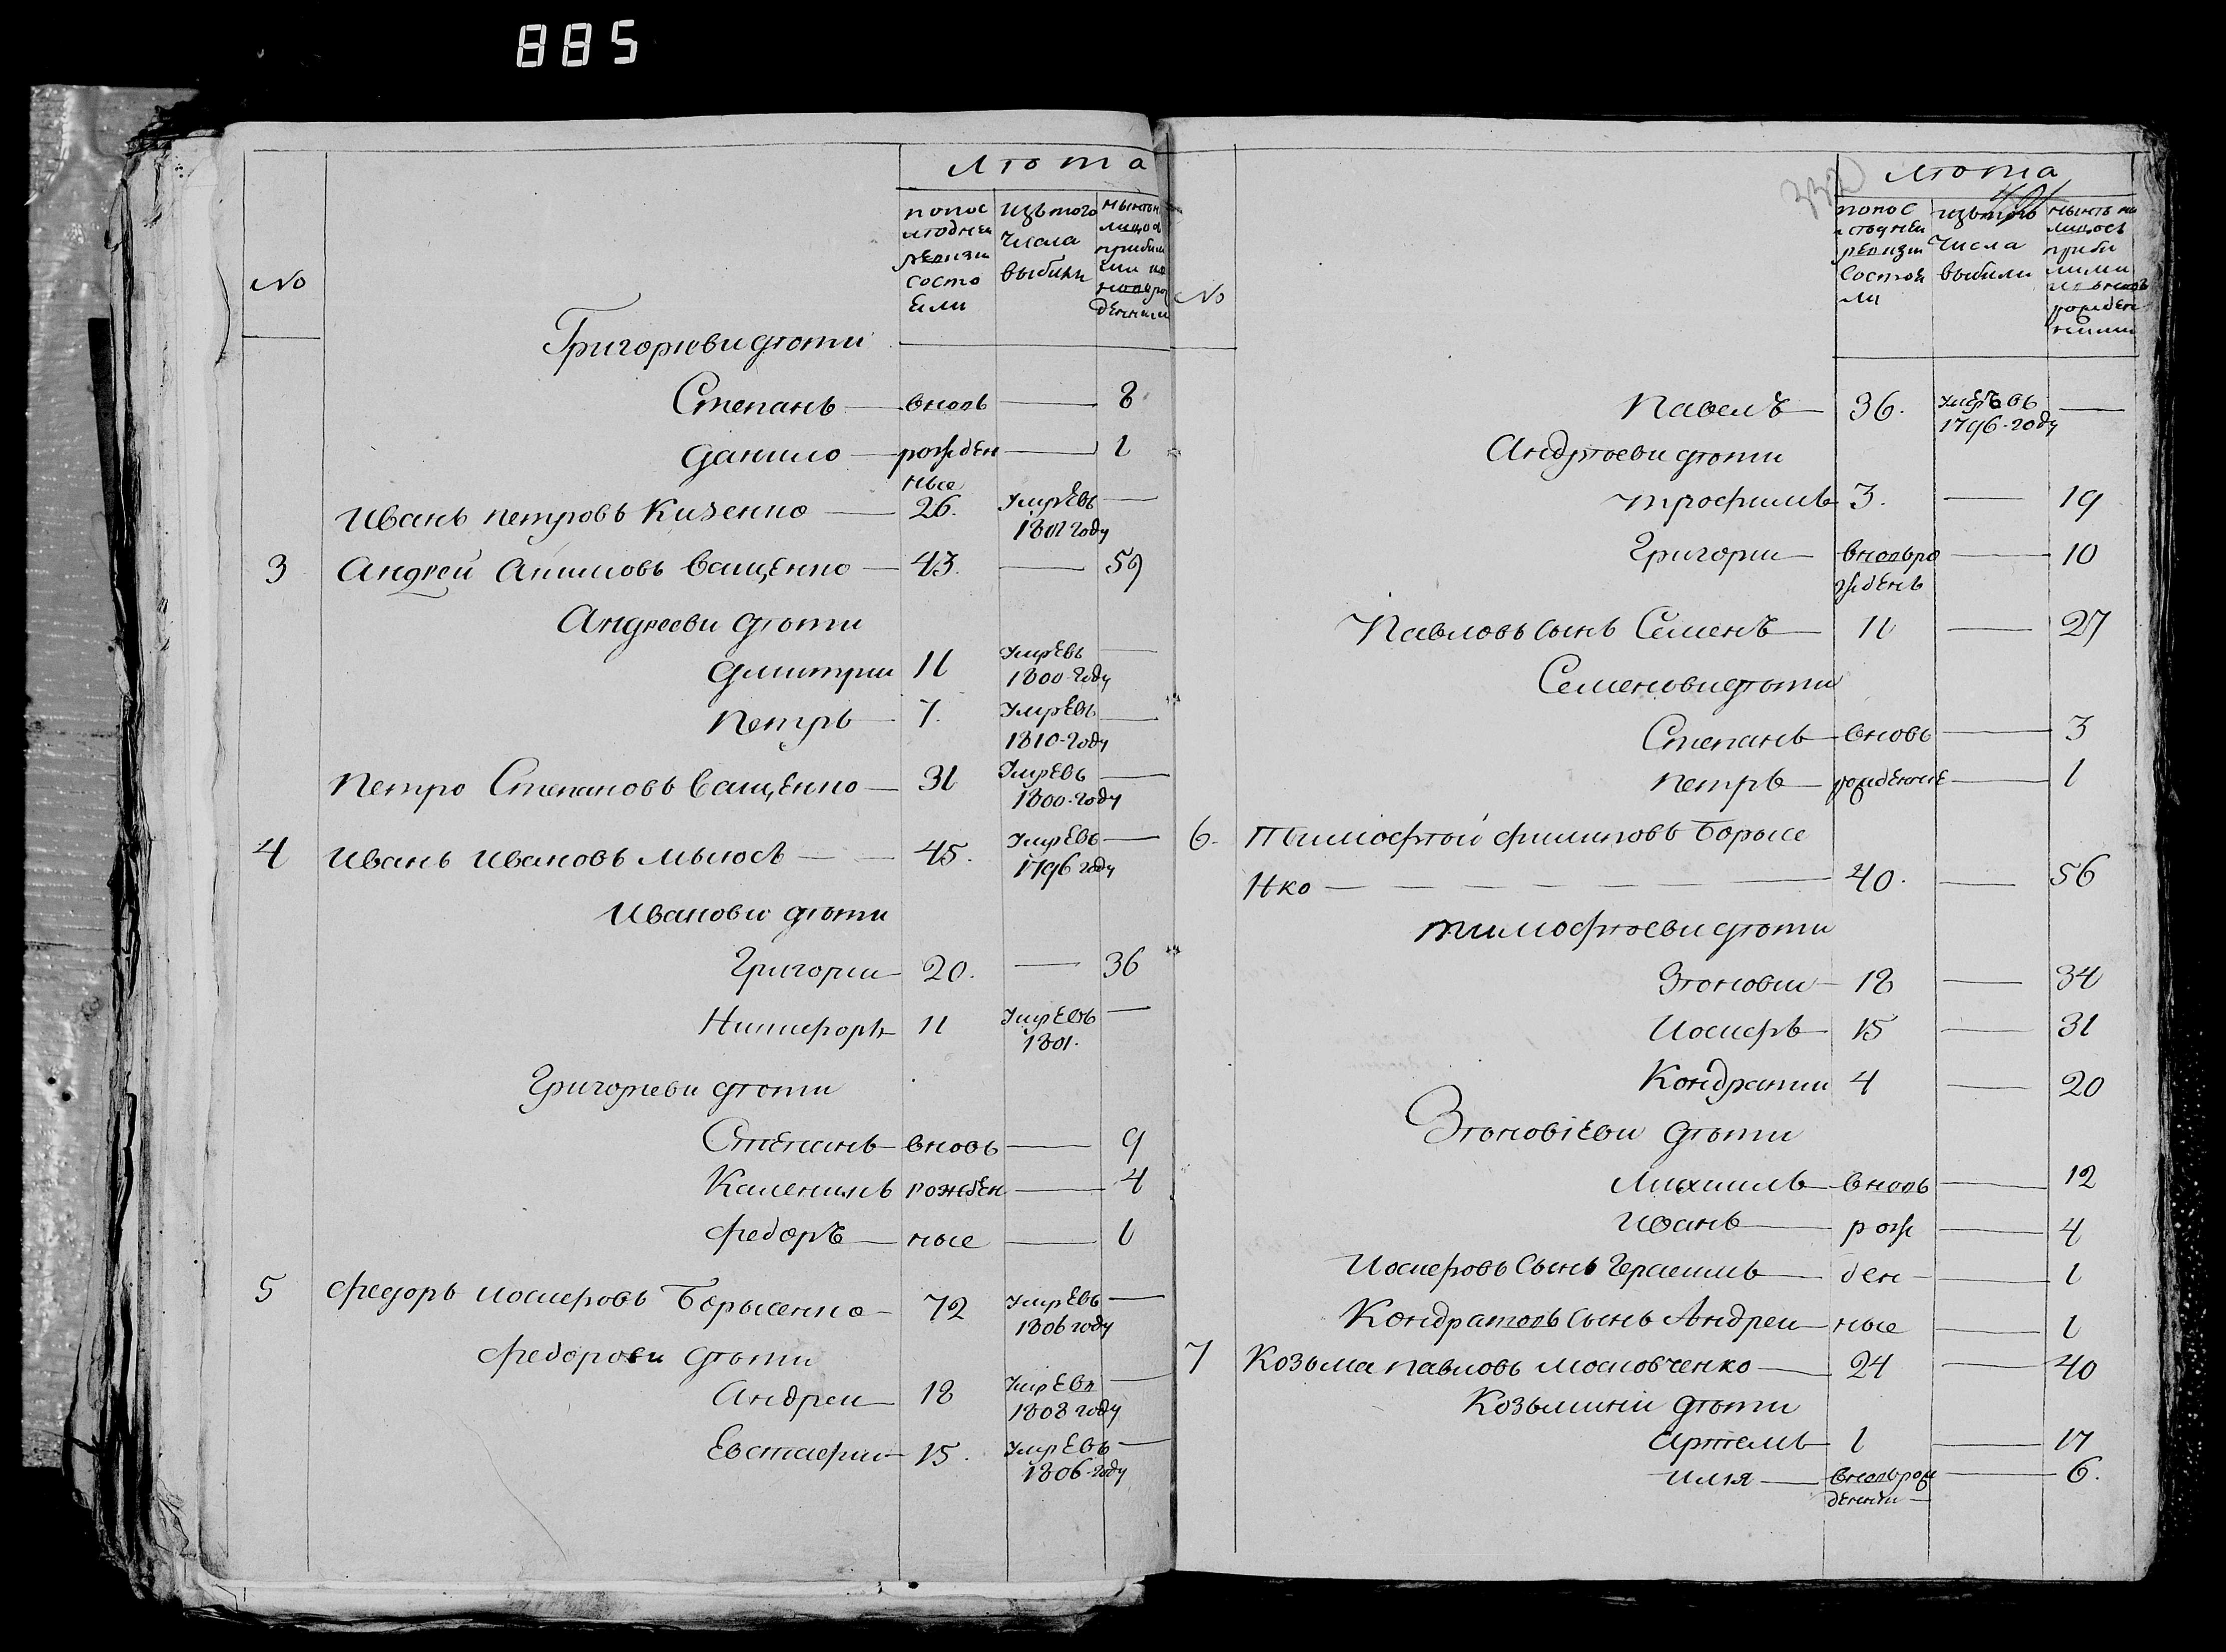 885
лѣта
№
попос
лѣдней
ревизи
состо
ели
изъ того
числа
выбили
Григориеви дѣти
Степанъ — вновь — 8
Данило — рожден — 1
ные
Иванъ Петровъ Кизенко — 26. умре въ —
1801 году
3 Андрей Акимовъ Ващенко — 43. — 59
Андрееви дѣти
Дмитрии 11 умре въ —
1800-году
Петръ — 7. умре въ —
1810-году
Петро Степановъ Ващенко — 31 умре въ —
1800-году
4 Иванъ Ивановъ — 45. умре въ —
1796 году
Иванови дѣти
Григории — 20. — 36
Никифоръ — 11 умре въ —
1801.
Григориеви дѣти
Степанъ — вновь — 9
Каленикъ рожден — 4
Федоръ — ные — 1
5 Федоръ Иосифовъ Борысенко — 72 умре въ —
1806 году
Федорови дѣти
Андреи — 18 умре въ —
1808 году
Евстафии — 15. умре въ —
1806-году
332
лѣта
401
№
попос
лѣдней
ревизи
состоя
ли
изъ того
числа
выбили
нынѣ на
лицость
прибы
лыми
и вновь
рожден
ными
Павелъ — 36. умеръ въ —
1796-году
Андрѣеви дѣти
Трофимъ 3. — 19
Григории — вновь ро — 10
жденъ
Павловъ сынъ Семенъ — 11 — 27
Семенови дѣти
Степанъ — вновь — 3
Петръ — рожденые — 1
6. Тимофѣй Филиповъ Борысе
нко — — — — — — — 40. — 56
Тимофѣеви дѣти
Зѣновии — 18 — 34
Иосифъ — 15 — 31
Кондратии 4 — 20
Зѣновіеви дѣти
Михаилъ — вновь — 12
Иванъ — рож — 4
Иосифовъ сынъ Герасимъ — ден — 1
Кондратовъ сынъ Андреи — ные — 1
7 Козьма Павловъ Московченко — 24 — 40
Козьмини дѣти
Артемъ — 1 — 17
Илия — вновь рож — 6.
денъ —